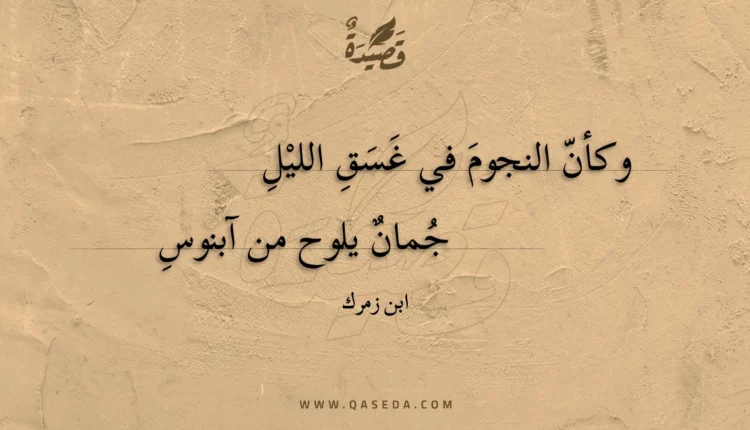 قَصِيدَةٌ
وكأنّ النجومَ في غَسَقِ الليْلِ
جُمانٌ يلوح من آبنوسِ
ابن زمرك
WWW.QASEDA.COM